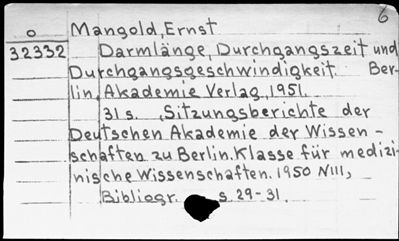 6
o Mangold, Ernst
32332 Darmlänge, Durchgangszeit und
Durchgangsgeschwindigkeit. Ber-
lin, Akademie Verlag, 1951.
31 s. , Sitzungsberichte der
Deutschen Akademie der Wissen-
schaften zu Berlin. Klasse für medizi-
nische Wissenschaften. 1950 NIII,
Bibliogr. s. 29-31.